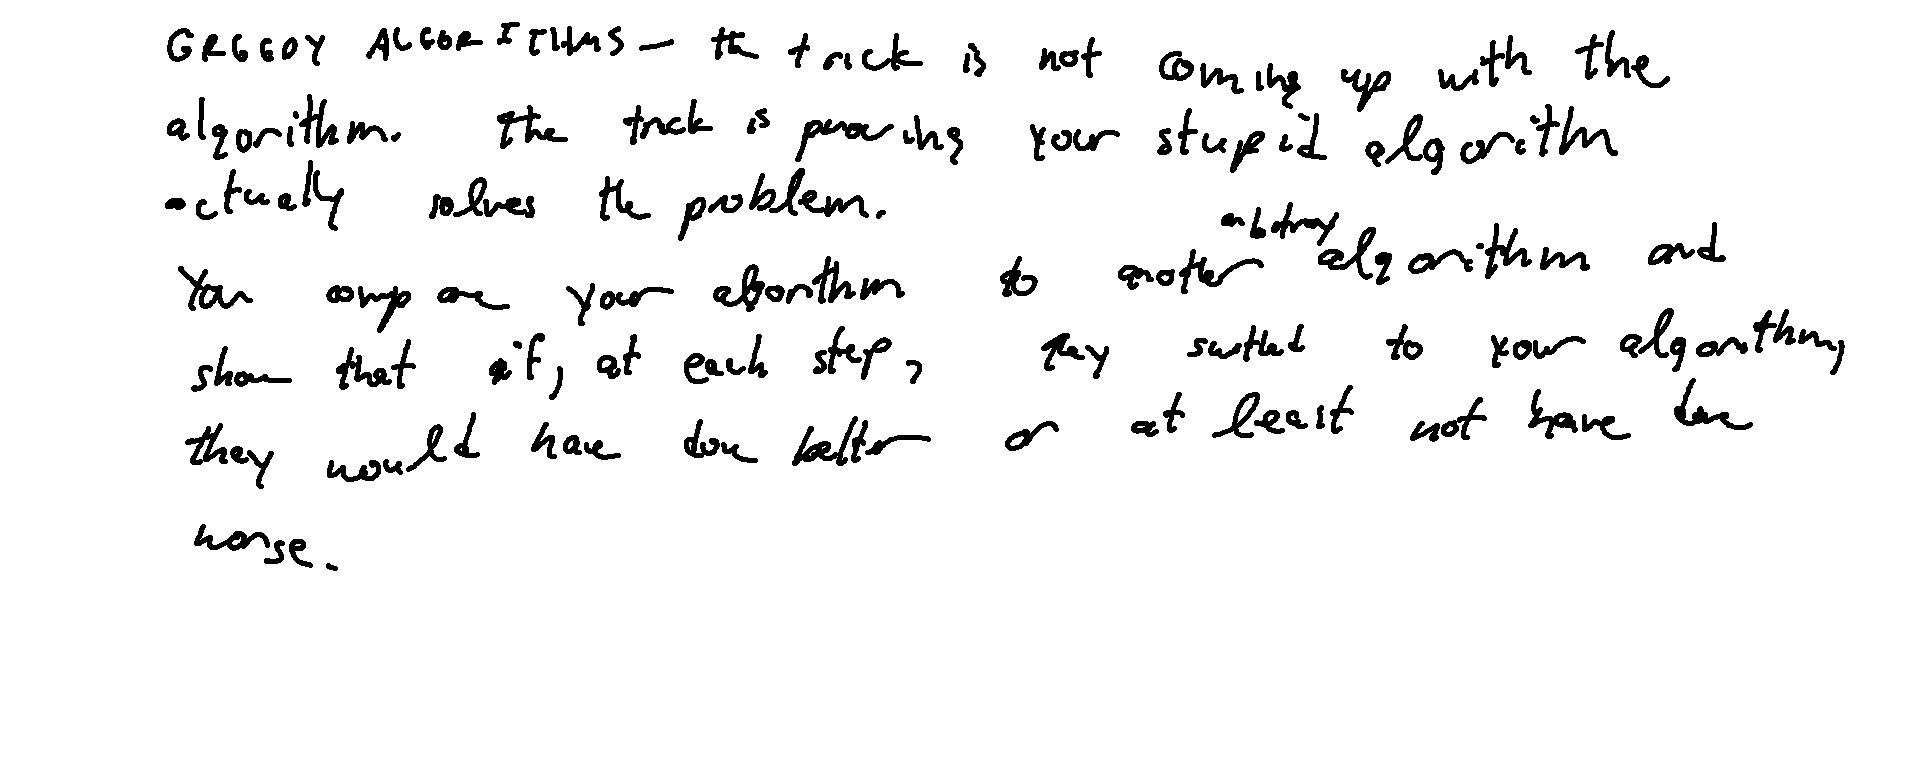 GREEDY ALGORITHMS — the trick is not coming up with the
algorithm. The trick is proving your stupid algorithm
actually solves the problem.
You compare your algorithm to another arbitrary algorithm and
show that if, at each step, they switched to your algorithm,
they would have done better or at least not have done
worse.